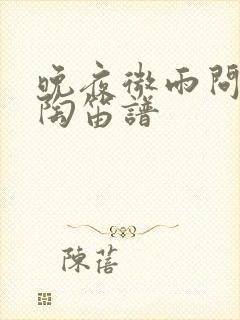 晚夜微雨問
陶笛譜
陳蓓